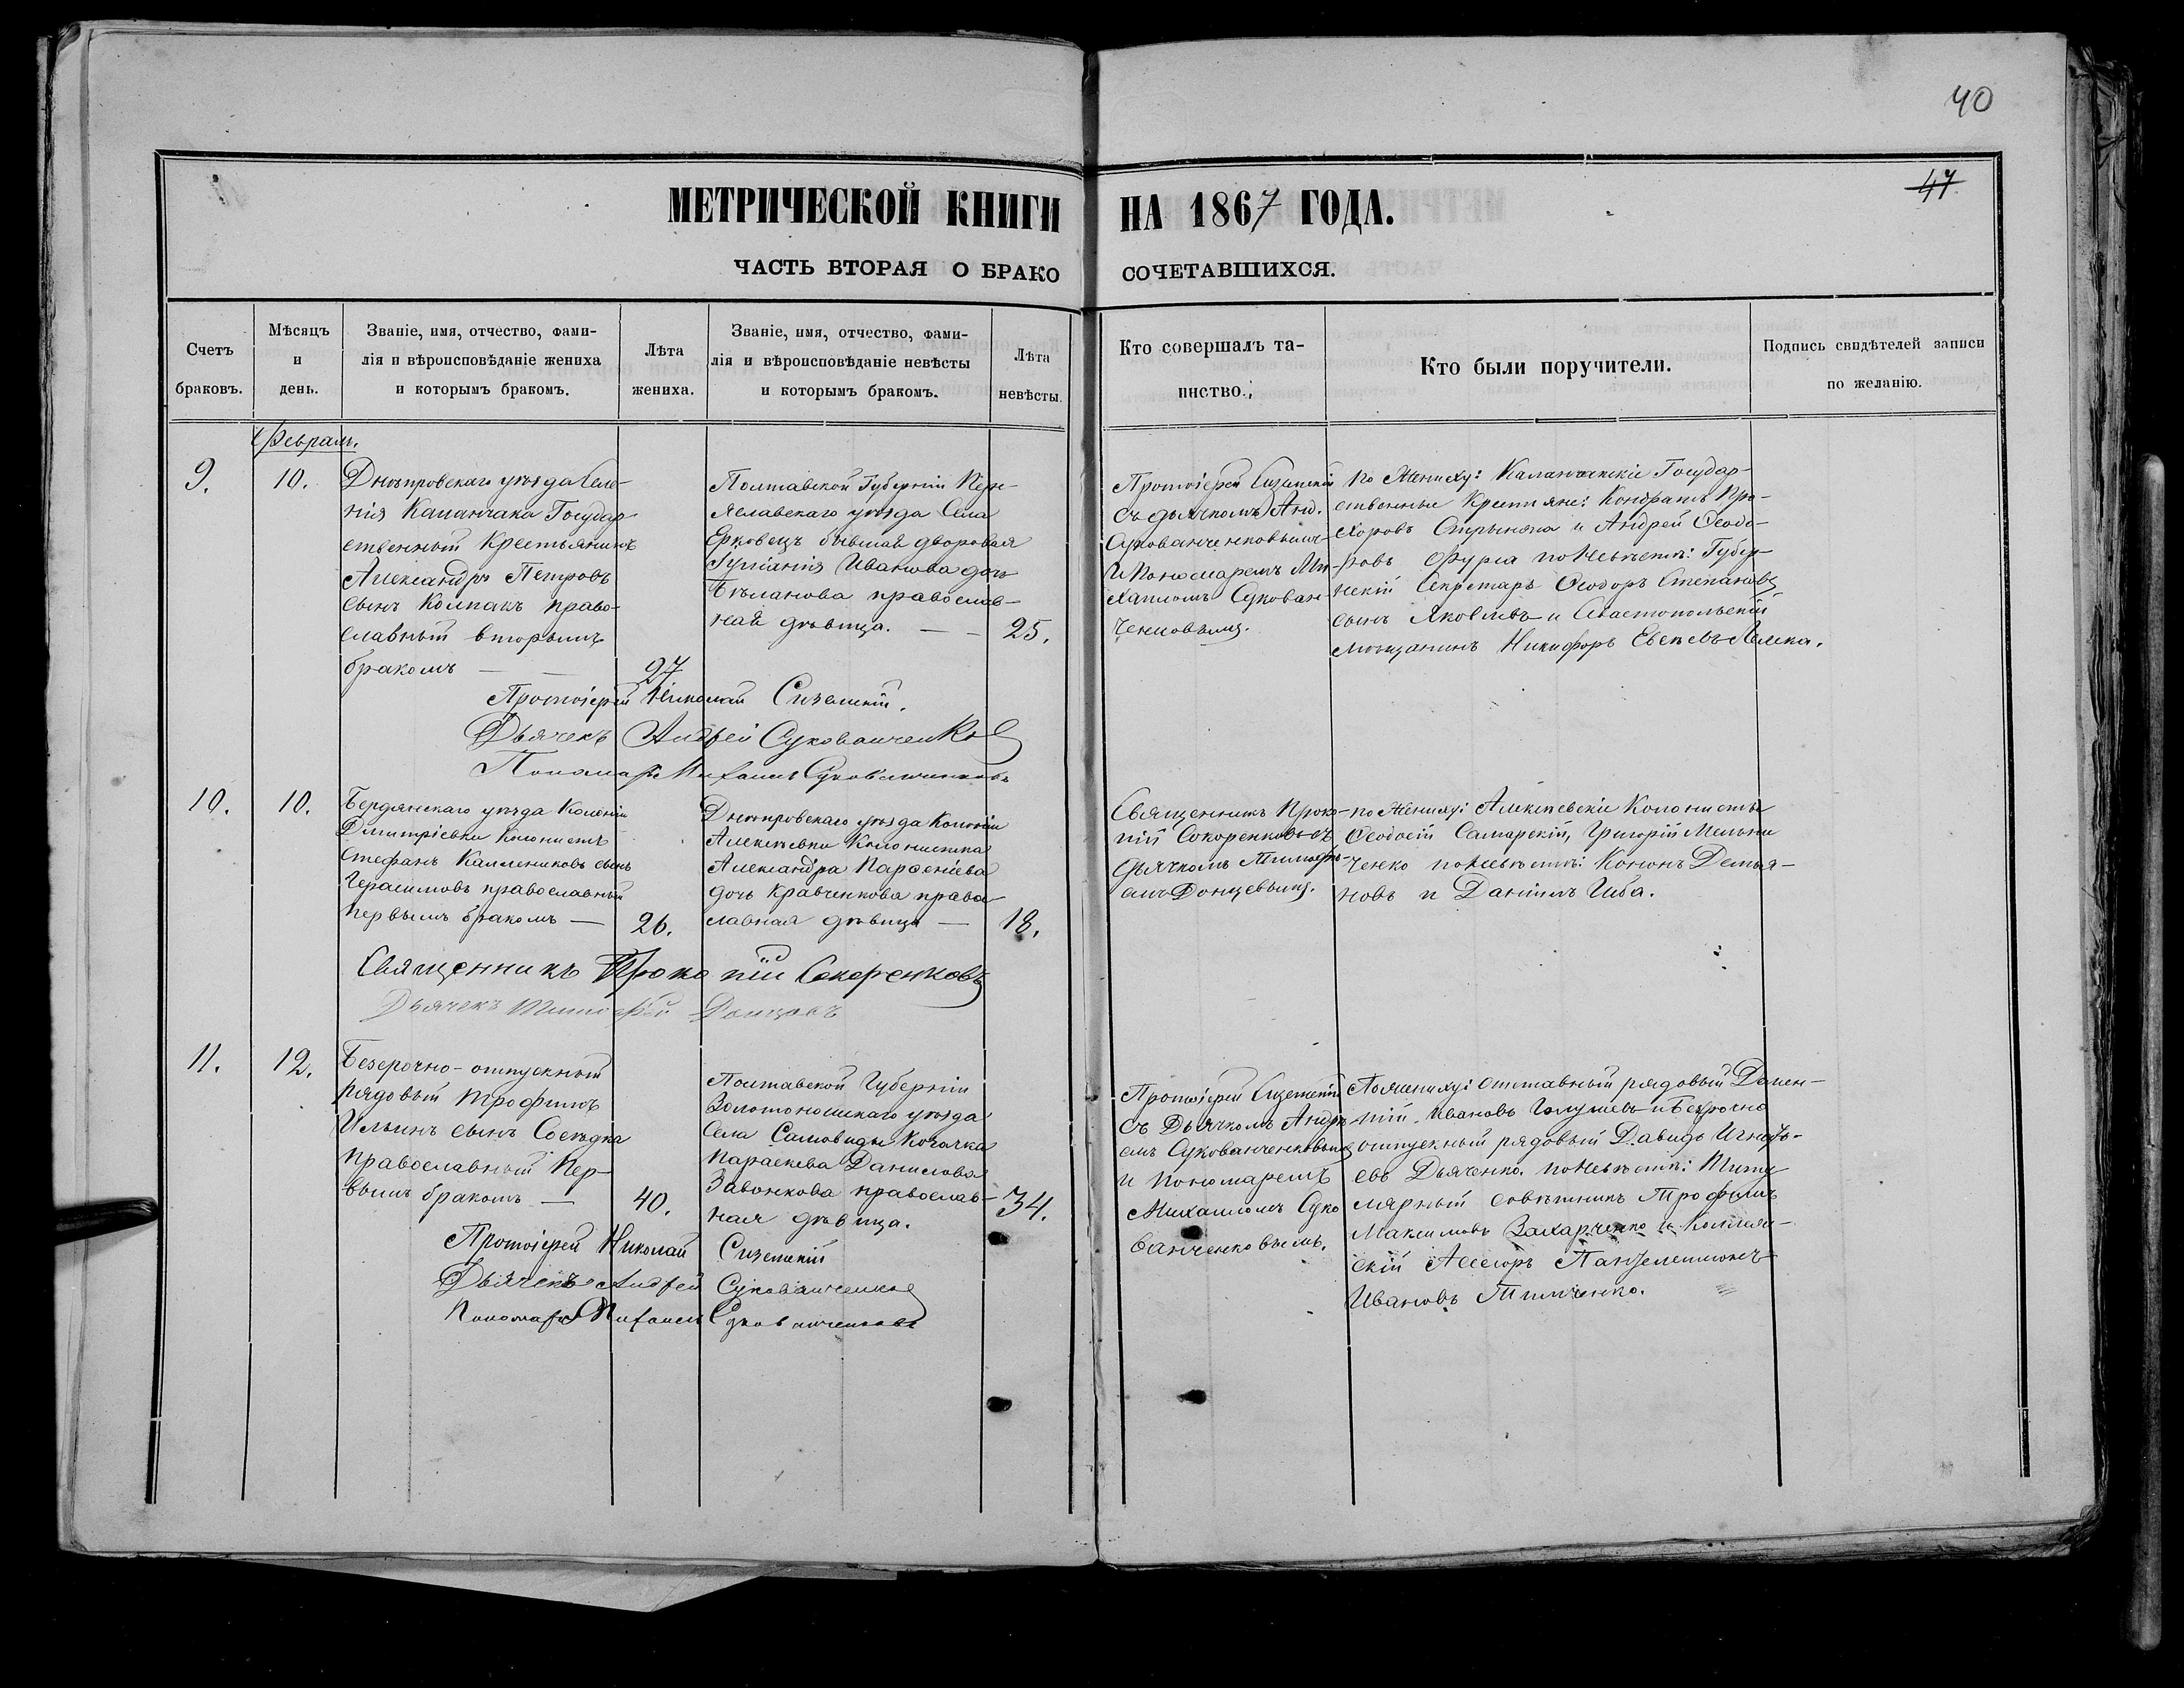 40
47
МЕТРИЧЕСКОЙ КНИГИ НА 1867 ГОДА.
ЧАСТЬ ВТОРАЯ О БРАКО СОЧЕТАВШИХСЯ.
Счетъ браковъ.
Мѣсяцъ и день.
Званіе, имя, отчество, фами-
лія и вѣроисповѣданіе жениха
и которымъ бракомъ.
Лѣта жениха.
Званіе, имя, отчество, фами-
лія и вѣроисповѣданіе невѣсты
и которымъ бракомъ.
Лѣта невѣсты.
Кто совершалъ та-
инство.
Кто были поручители.
Подпись свидѣтелей записи
по желанію.
Февраль.
9.
10.
Днѣпровскаго уѣзда Селе-
нія Каланчака Государ
ственный Крестьянинъ
Александръ Петровъ
сынъ Колпакъ право-
славный вторымъ
бракомъ
27
Полтавской Губерніи Пере-
яславскаго уѣзда Села
Ерковецъ бывшая дворовая
Іуліанія Иванова дочь
Бѣланова православ-
ная дѣвица.
25.
Протоіерей Сиземскій
съ дьячкомъ Анд.
Сукованченковымъ
и Пономаремъ Ми-
хаиломъ Сукован-
ченковымъ.
По Жениху: Каланчакскіе Государ-
ственные Крестьяне: Кондратъ Про-
хоровъ и Андрей Ѳеодо-
ровъ Фурса по Невѣстѣ: Губер-
нскій Секретарь Ѳеодоръ Степановъ
сынъ Яковлевъ и Севастопольскій
мѣщанинъ Никифоръ
Протоіерей Николай Сиземскій.
Дьячекъ Андрей Сукованченков
Пономарь Михаилъ Сукованченковъ
10.
10.
Бердянскаго уѣзда Колоніи
Дмитріевки Колонистъ
Стефанъ Калениковъ сынъ
Герасимовъ православный
первымъ бракомъ
26.
Днѣпровскаго уѣзда Колоніи
Алексѣевки Колонистка
Александра Парѳеніева
дочь Кравченкова право
славная дѣвица
18.
Священникъ Проко-
пій Сокоренковъ съ
дьячкомъ Тимофѣ-
емъ Донцевымъ.
по Жениху: Алексѣевскіе Колонисты
Ѳеодосій Самарскій, Григорій Мельни
ченко по Невѣстѣ: Кононъ Демья-
новъ и Даніилъ
Священникъ Прокопій Сокоренковъ
Дьячекъ Тимофѣй Донцовъ
11.
12.
Безсрочно-отпускный
рядовый Трофимъ
Ильинъ сынъ Сосѣдка
Православный Пер-
вымъ бракомъ
40.
Полтавской Губерніи
Золотоношскаго уѣзда
Села
Параскева Данилова
православ-
ная дѣвица.
34.
Протоіерей Сиземскій
съ Дьячкомъ Андре
емъ Сукованченковымъ
и Пономаремъ
Михаиломъ Суко
ванченковымъ.
По жениху: отставный рядовый
Ивановъ и Безсрочно
отпускный рядовый Давидъ Игнать-
евъ Дьяченко. по Невѣстѣ: Титу
лярный совѣтникъ Трофимъ
Максимовъ Захарченко и Коллеж-
скій Асессоръ Пантелеимонъ
Ивановъ Тимченко.
Протоіерей Николай Сиземскій
Дьячекъ Андрей Сукованченков
Пономарь Михаилъ Сукованченковъ